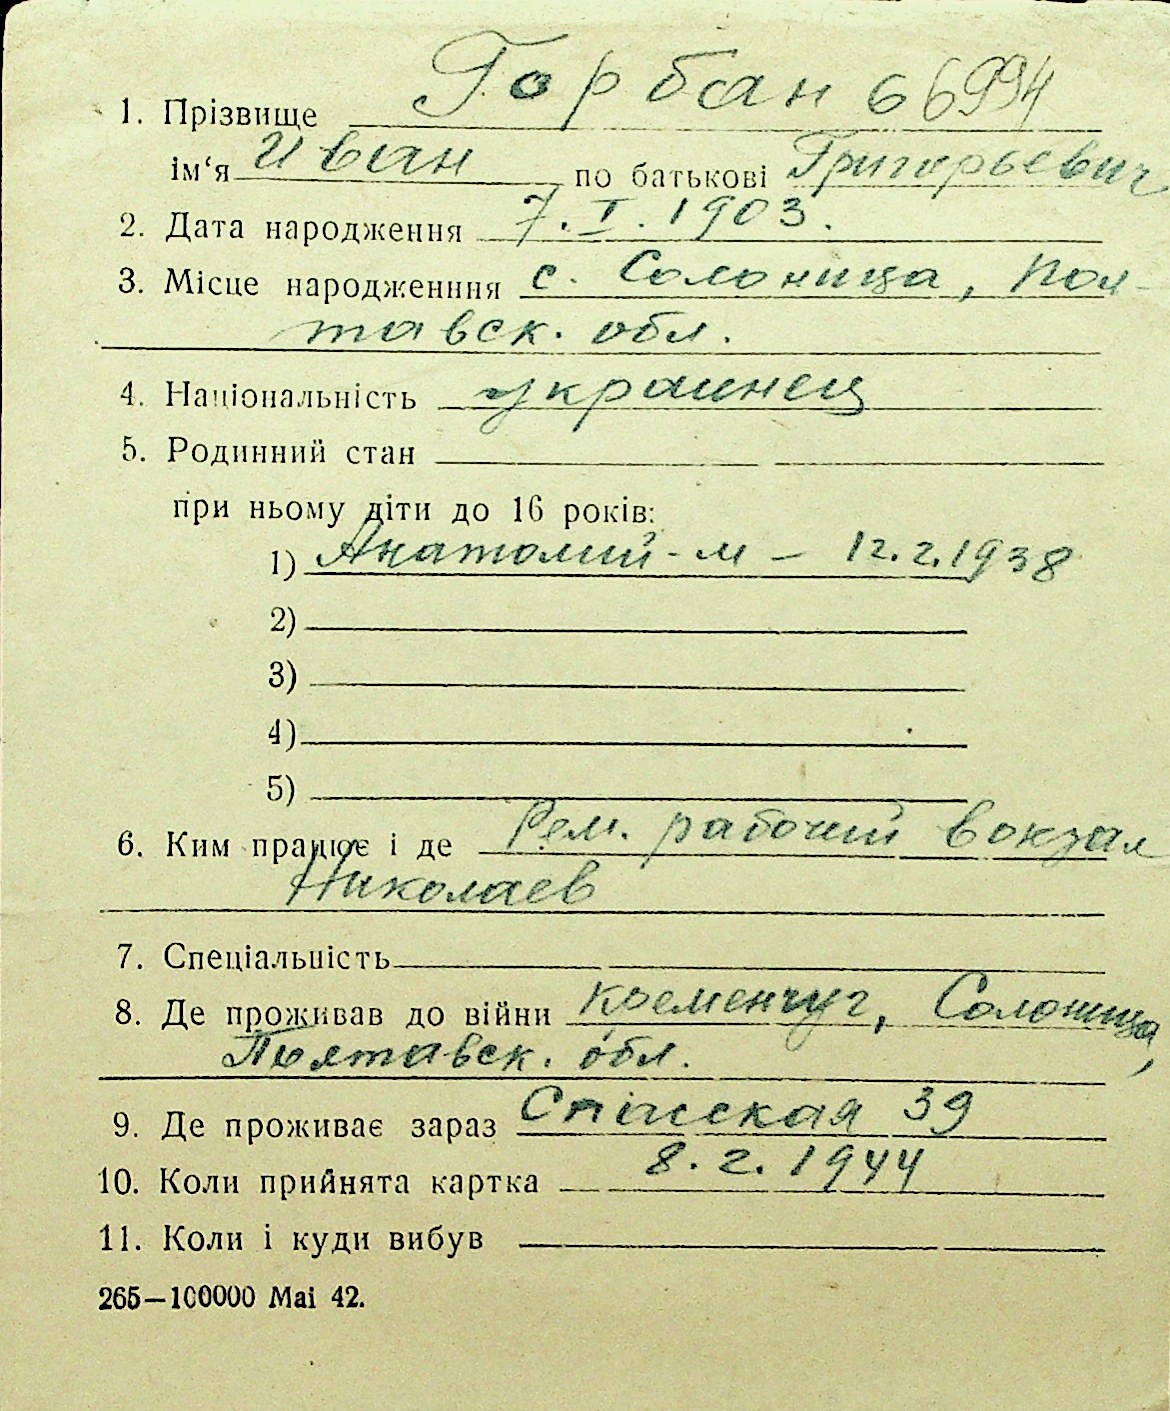 1. Прізвище Горбан 66994
ім‘я Иван по батькові Григорьевич
2. Дата народження 7. I. 1903.
3. Місце народженння с. Солоница, Пол-
тавск. обл.
4. Національність украинец
5. Родинний стан
при ньому діти до 16 років:
1) Анатолий - м – 12.2.1938
2)
3)
4)
5)
6. Ким працює і де Рем. рабочий вокзал
Николаев
7. Спеціальність
8. Де проживав до війни Кременчуг, Солоница,
Полтавск. обл.
9. Де проживає зараз Спасская 39
10. Коли прийнята картка 8. 2. 1944
11. Коли і куди вибув
265—100000 Mai 42.